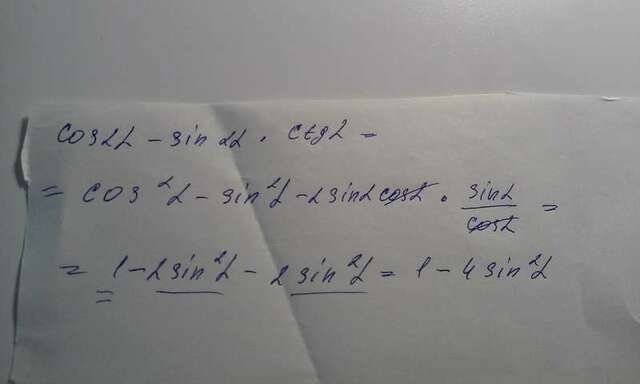 cos2α - sin2α · ctgα =
= cos²α - sin²α - 2sinαcosα · sinα/cosα =
= 1 - 2sin²α - 2sin²α = 1 - 4sin²α